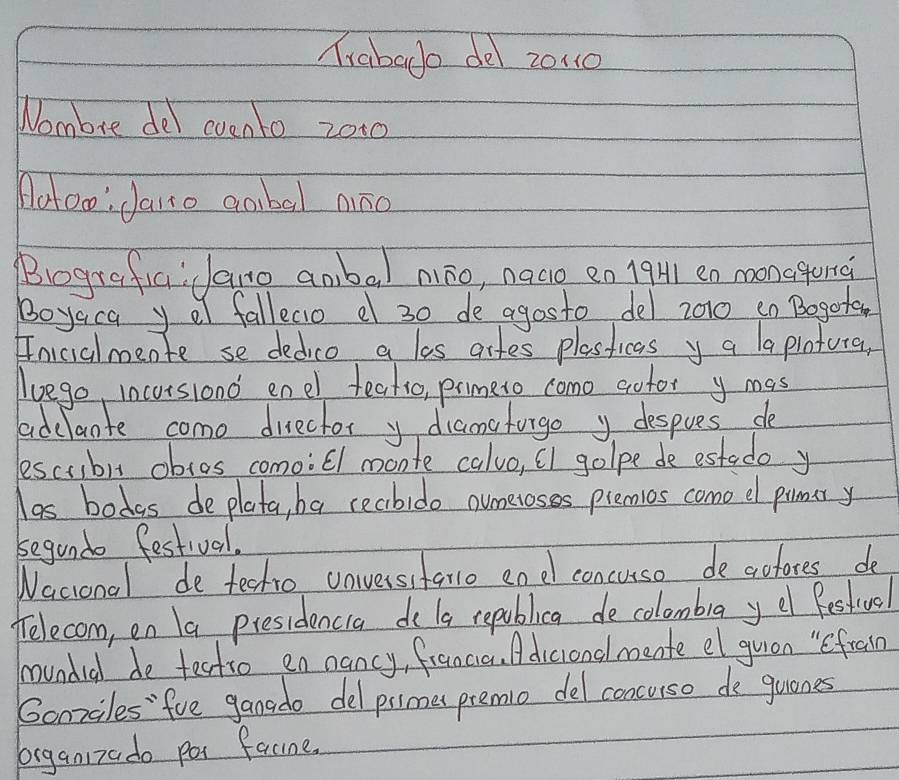 Trabajo del zorro
Nombre del cuento zoro
Autor: Jairo anibal niño
Biografia: Jairo anibal niño, nacio en 1941 en moniquirá
Boyaca y el fallecio el 30 de agosto del 2010 en Bogota,
Inicialmente se dedico a las artes plasticas y a la pintura,
luego, incursionó en el teatro, primero como autor y mas
adelante como director y diamaturgo y despues de
escribir obras como: El monte calvo, El golpe de estado y
las bodas de plata, ha recibido numerosos premios como el primer y
segundo festival.
Nacional de teatro universitario en el concurso de autores de
Telecom, en la presidencia de la republica de colombia y el festival
mundial de teatro en nancy, francia. Adicionalmente el guion "Efrain
Gonzáles" fue ganado del primer premio del concurso de guiones
organizado por facine.